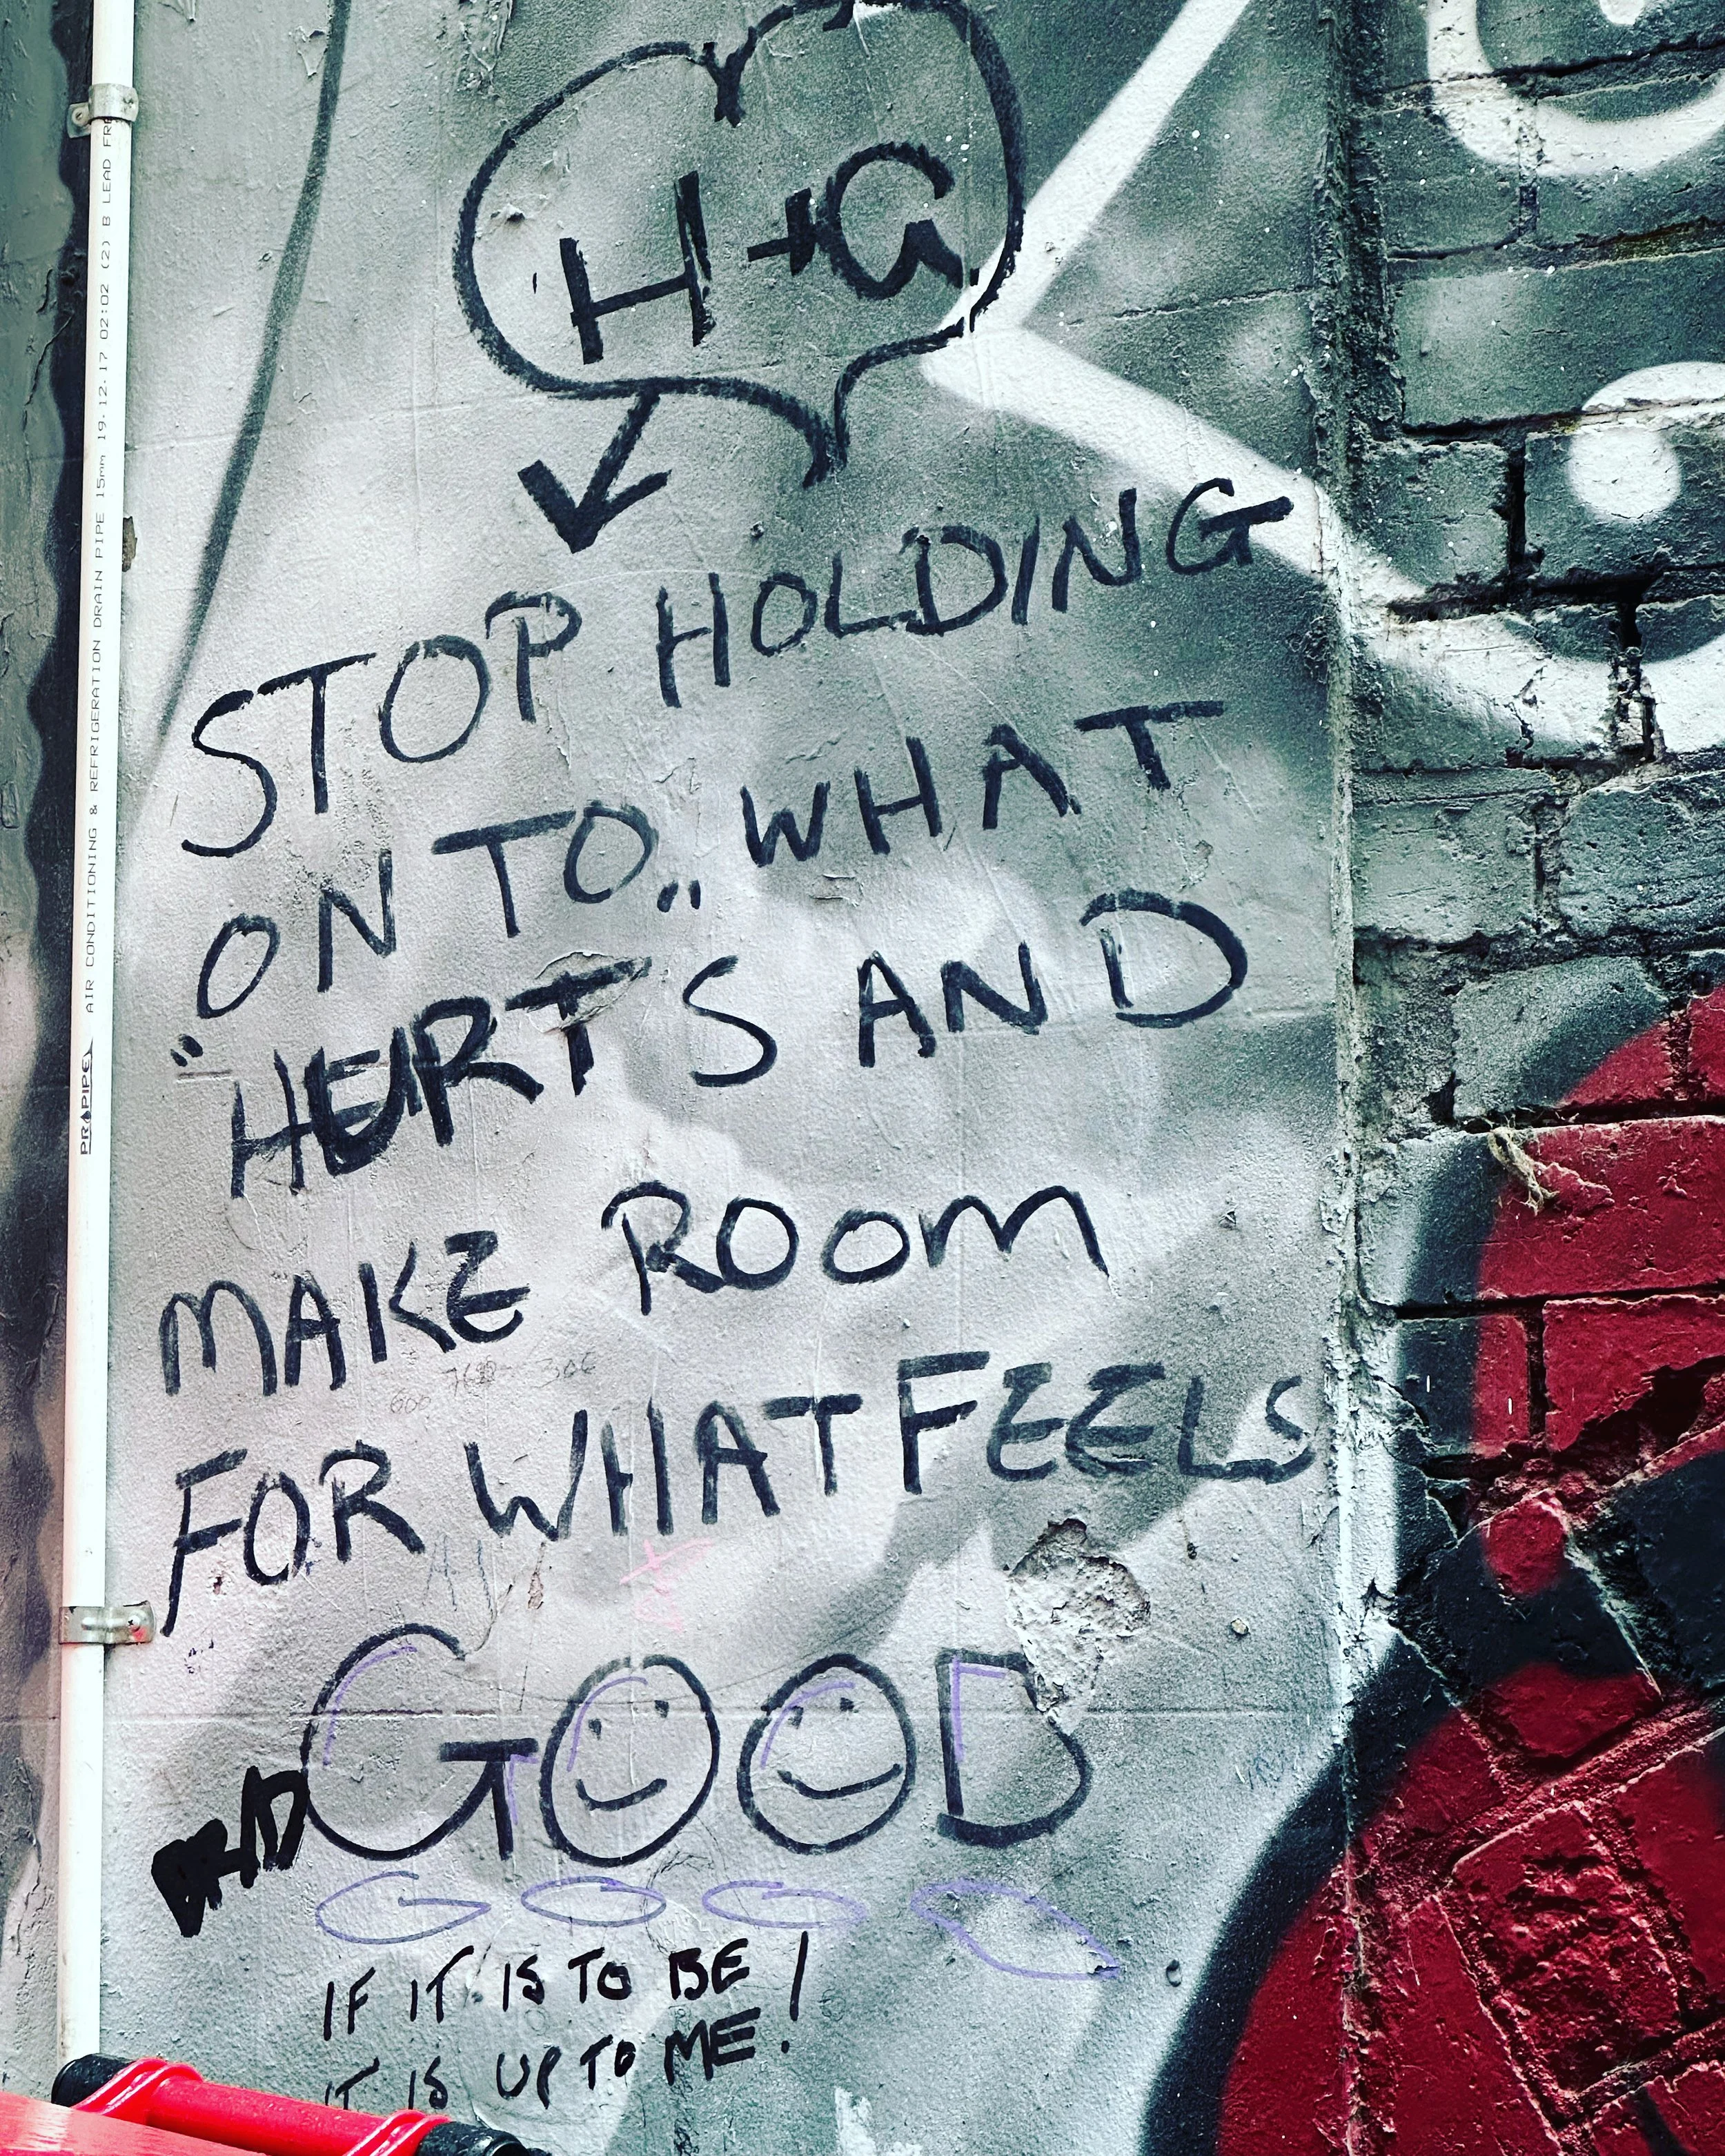 H+G
STOP HOLDING
ON TO WHAT
"HERT"S AND
MAKE ROOM
FOR WHAT FEELS
GOOD
IF IT IS TO BE
IT IS UP TO ME!
PROPIPE AIR CONDITIONING & REFRIGERATION DRAIN PIPE 15mm 19.12.17 02:02 (2) B LEAD FRE